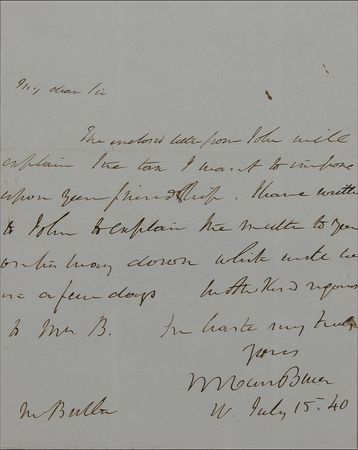 My dear Sir
The enclosed letter from John will
explain the tax I want to impose
upon your friendship. I have written
to John to explain the matter to you
on his way down which will be
in a few days. With kind regards
to Mrs B. In haste very truly
yours
M Van Buren
W. July 15. 40
Mr Butler